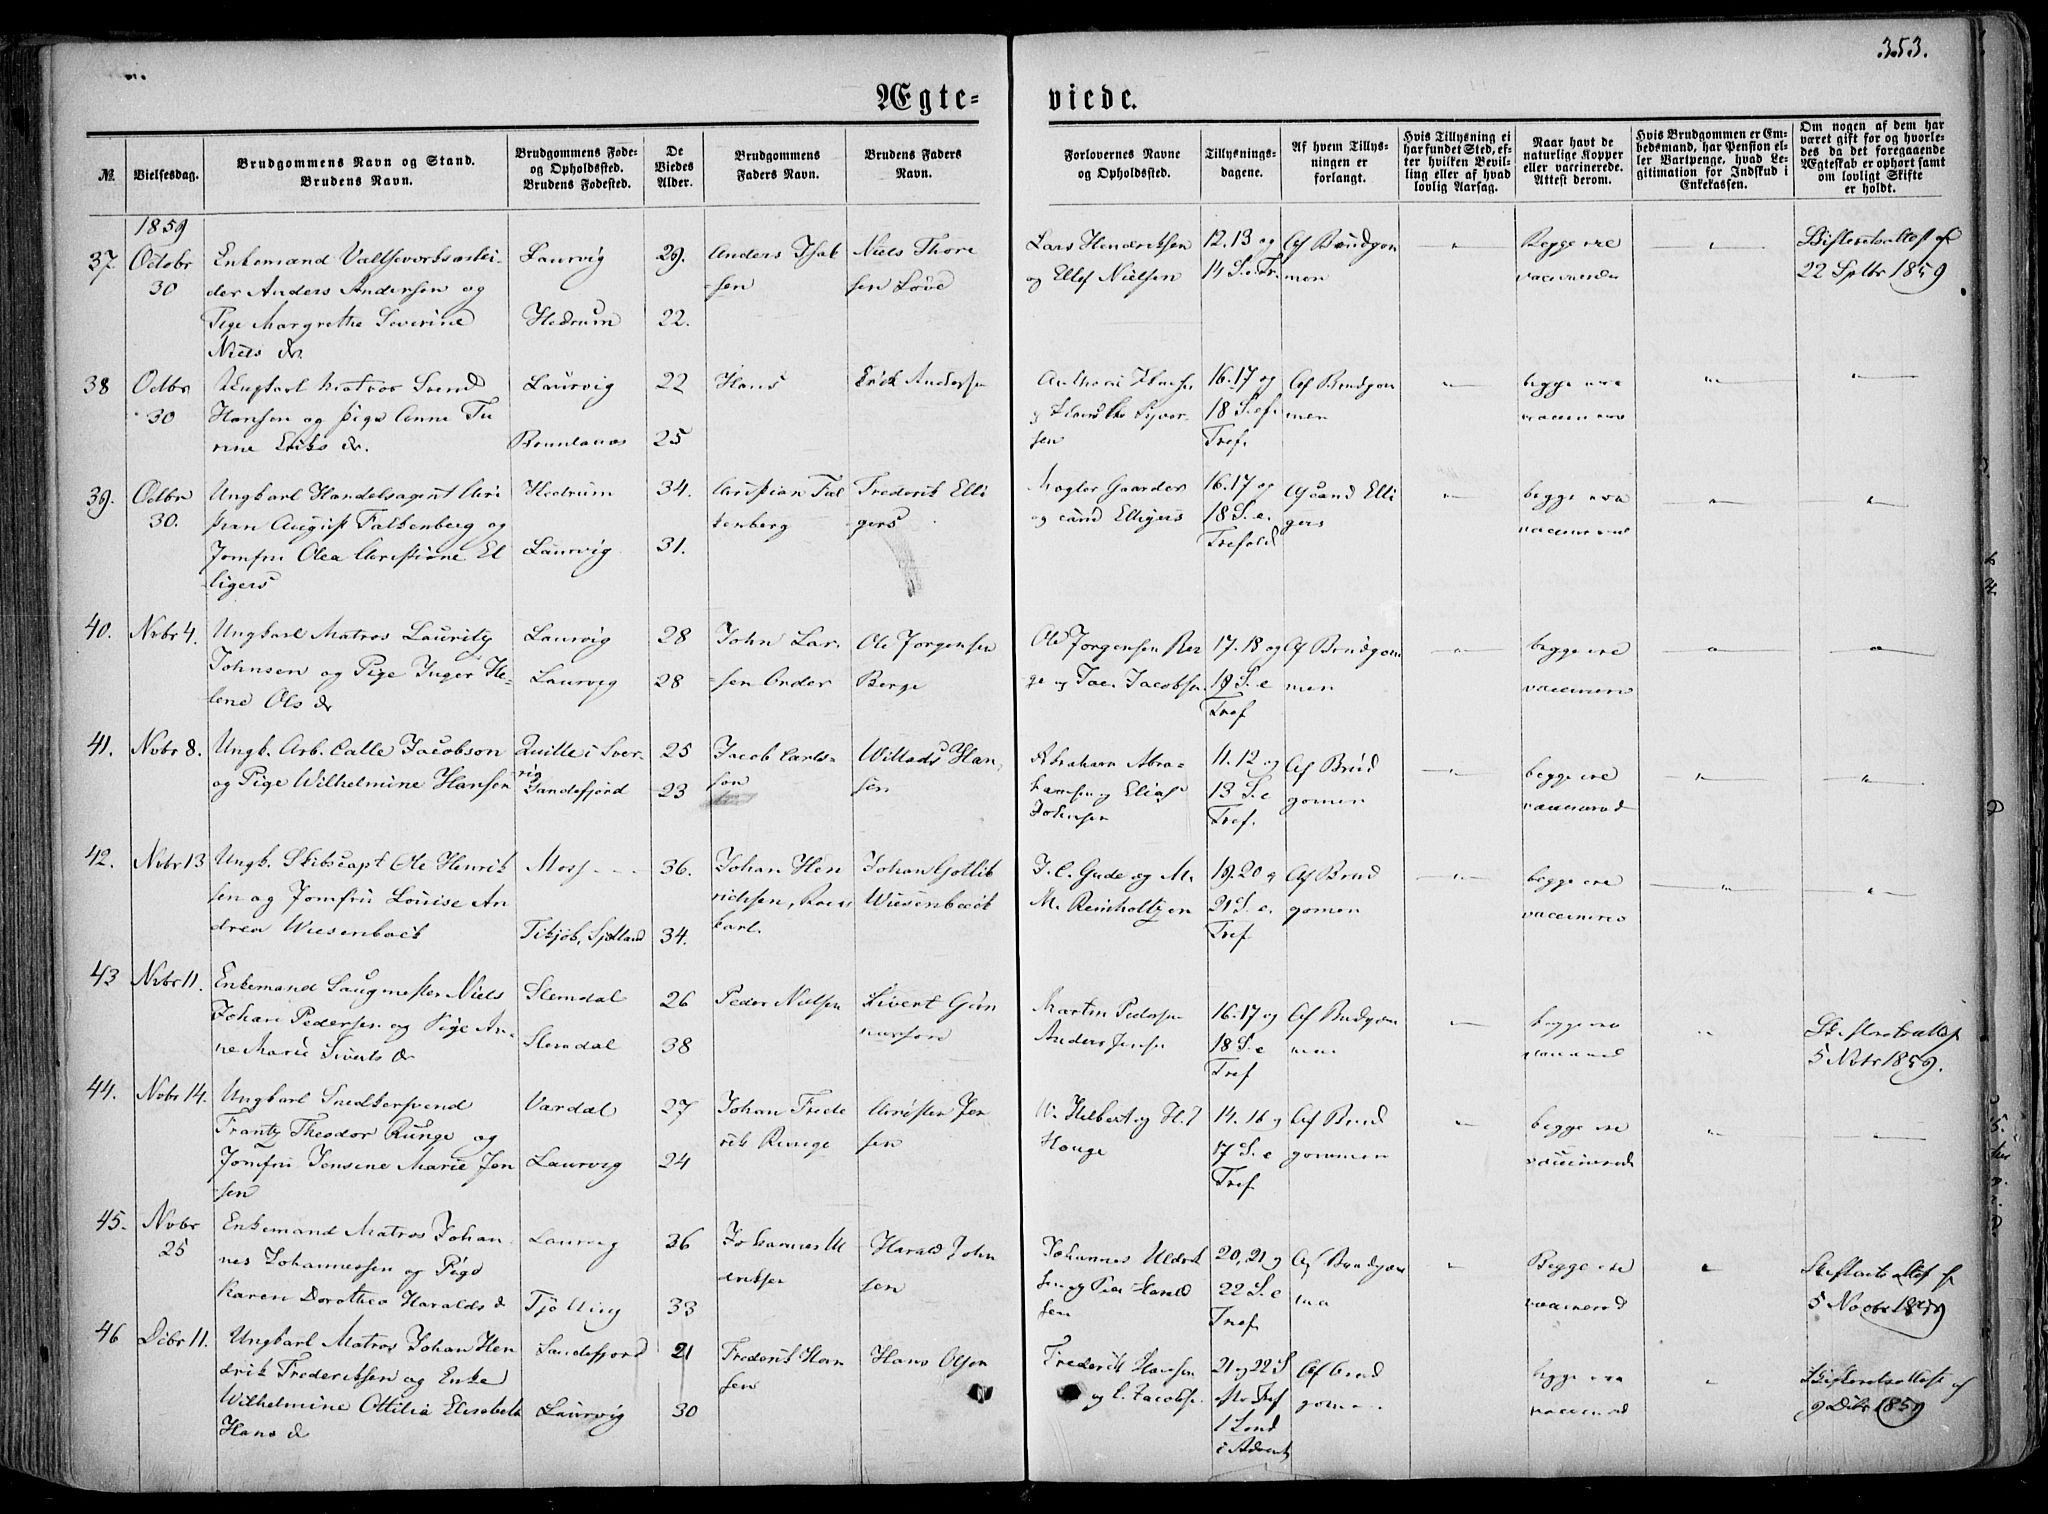 353.
Ægte-
viede.
№
Vielsesdag.
Brudgommens Navn og Stand.
Brudens Navn.
Brudgommens Føde-
og Opholdssted.
Brudens Fødested.
De
Viedes
Alder.
Brudgommens
Faders Navn.
Brudens Faders
Navn.
Forlovernes Navne
og Opholdssted.
Tillysnings-
dagene.
Af hvem Tillys-
ningen er
forlangt.
Hvis Tillysning ei
har fundet Sted, ef-
ter hvilken Bevil-
ling eller af hvad
lovlig Aarsag.
Naar havt de
naturlige Kopper
eller vaccinerede.
Attest derom.
Hvis Brudgommen er Em-
bedsmand, har Pension el-
ler Vartpenge, hvad Le-
gitimation for Indskud i
Enkekassen.
Om nogen af dem har
været gift for og hvorle-
des da det foregaaende
Ægteskab er ophørt samt
om lovligt Skifte
er holdt.
1859
37. Octobr
30
Enkemand
der Anders Andersen og
Pige Margrethe Severine
Niels dr.
Laurvig
Hedrum
29.
22.
Anders Isak
sen
Niels Thore
sen Löve
Lars Hendriksen
og Ellef Nielsen
12. 13 og
14 S. e. Tr.
Af Brudgom
men
Begge ere
vaccinerede
Skifteretsattest af
22 Sptbr 1859
38 Octbr
30
Ungkarl Matros Svend
Hansen og Pige Anne
Eriks dr.
Laurvig
Brunlanes
22
25
Hans
Erick Andersen
16. 17 og
18 S. ef.
Tref.
Af Brudgom
men
begge ere
39. Octbr
30.
Ungkarl Handelsagent Chri
stian August Falkenberg og
Jomfru Olea Christiane El
ligers
Hedrum
Laurvig
34.
31.
Christian Fal
kenberg
Frederik Elli
gers
Mægler Gaarder
og cand Elligers
16. 17 og
18 S. e.
Trefold
Af Cand Elli
gers
begge ere
40. Nvbr 4.
Ungkarl Matros Lauritz
Johnsen og Pige Inger He-
lene Ols dr
Laurvig
Laurvig
28
28
John Lar-
sen
Ole Jorgensen
Berge
Ole Jorgensen Ber
ge og Jacobsen
17. 18 og
19 S. e
Tref
Af Brudgom
men
begge ere
41. Nvbr 8.
Ungk. Arb. Calle Jacobson
og Pige Wilhelmine Hansen
Quille i Sver
rig
Sandefjord
25
23
Jacob Carls-
son
Willads Han
sen
Abraham Abra-
hamsen og Elias
Johnsen
11. 12 og
13 S. e
Tref.
Af Brud
gomen
begge ere
42. Nvbr 13
Ungk. Skibscapt Ole Henrik
sen og Jomfru Louise An
drea Wiesenbock
Moss
Tikjöb, Sjælland
36.
34.
Johan Hen
richsen,
Johan Gotlib
Wiesenbock
J. C. Gude og M.
M. Reinholtzen
19. 20 og
21 S. e.
Tref
Af Brud
gomen
begge ere
43 Nvbr 11.
Enkemand Saugmester Niels
Johan Pedersen og Pige An-
ne Marie Siverts dr
Slemdal
Slemdal
26
38
Peder Nielsen
Sivert Gun
narson
Martin Pedersen
Anders Jensen
16. 17 og
18 S. e
Tref
Af Brudgom
men
begge ere
Skifteretsattest
5 Nvbr 1859.
44. Nvbr 14.
Ungkarl Snedkersvend
Frantz Theodor Runge og
Jomfru Jensine Marie Jen
sen
Vardal
Laurvig
27
24
Johan Frede
rik Runge
Christen Jen
sen
14. 16 og
17 S. e
Tref
Af Brud
gommen
begge ere
45. Nvbr
25
Enkemand Matros Johan
nes Johannessen og Pige
Karen Dorothea Haralds d
Laurvig
Tjølling
36
33
Johannes
Harald John
sen
Johannes
sen og Peder Harald
sen
20, 21 og
22 S. e
Tref
Begge ere
Skifterets attest af
5 Novbr 1859
46 Decbr 11.
Ungkarl Matros Johan Hen
drik Frederiksen og Enke
Wilhelmine Ottilia Elisabeth
Hans d
Sandefjord
Laurvig
21
30
Frederik Han
sen
Hans Olsen
Frederik Hansen
og C. Jacobsen
21 og 22 S
Tref
1 Sond
i Advent
begge ere
Skifteretsattest af
9 Decbr 1859